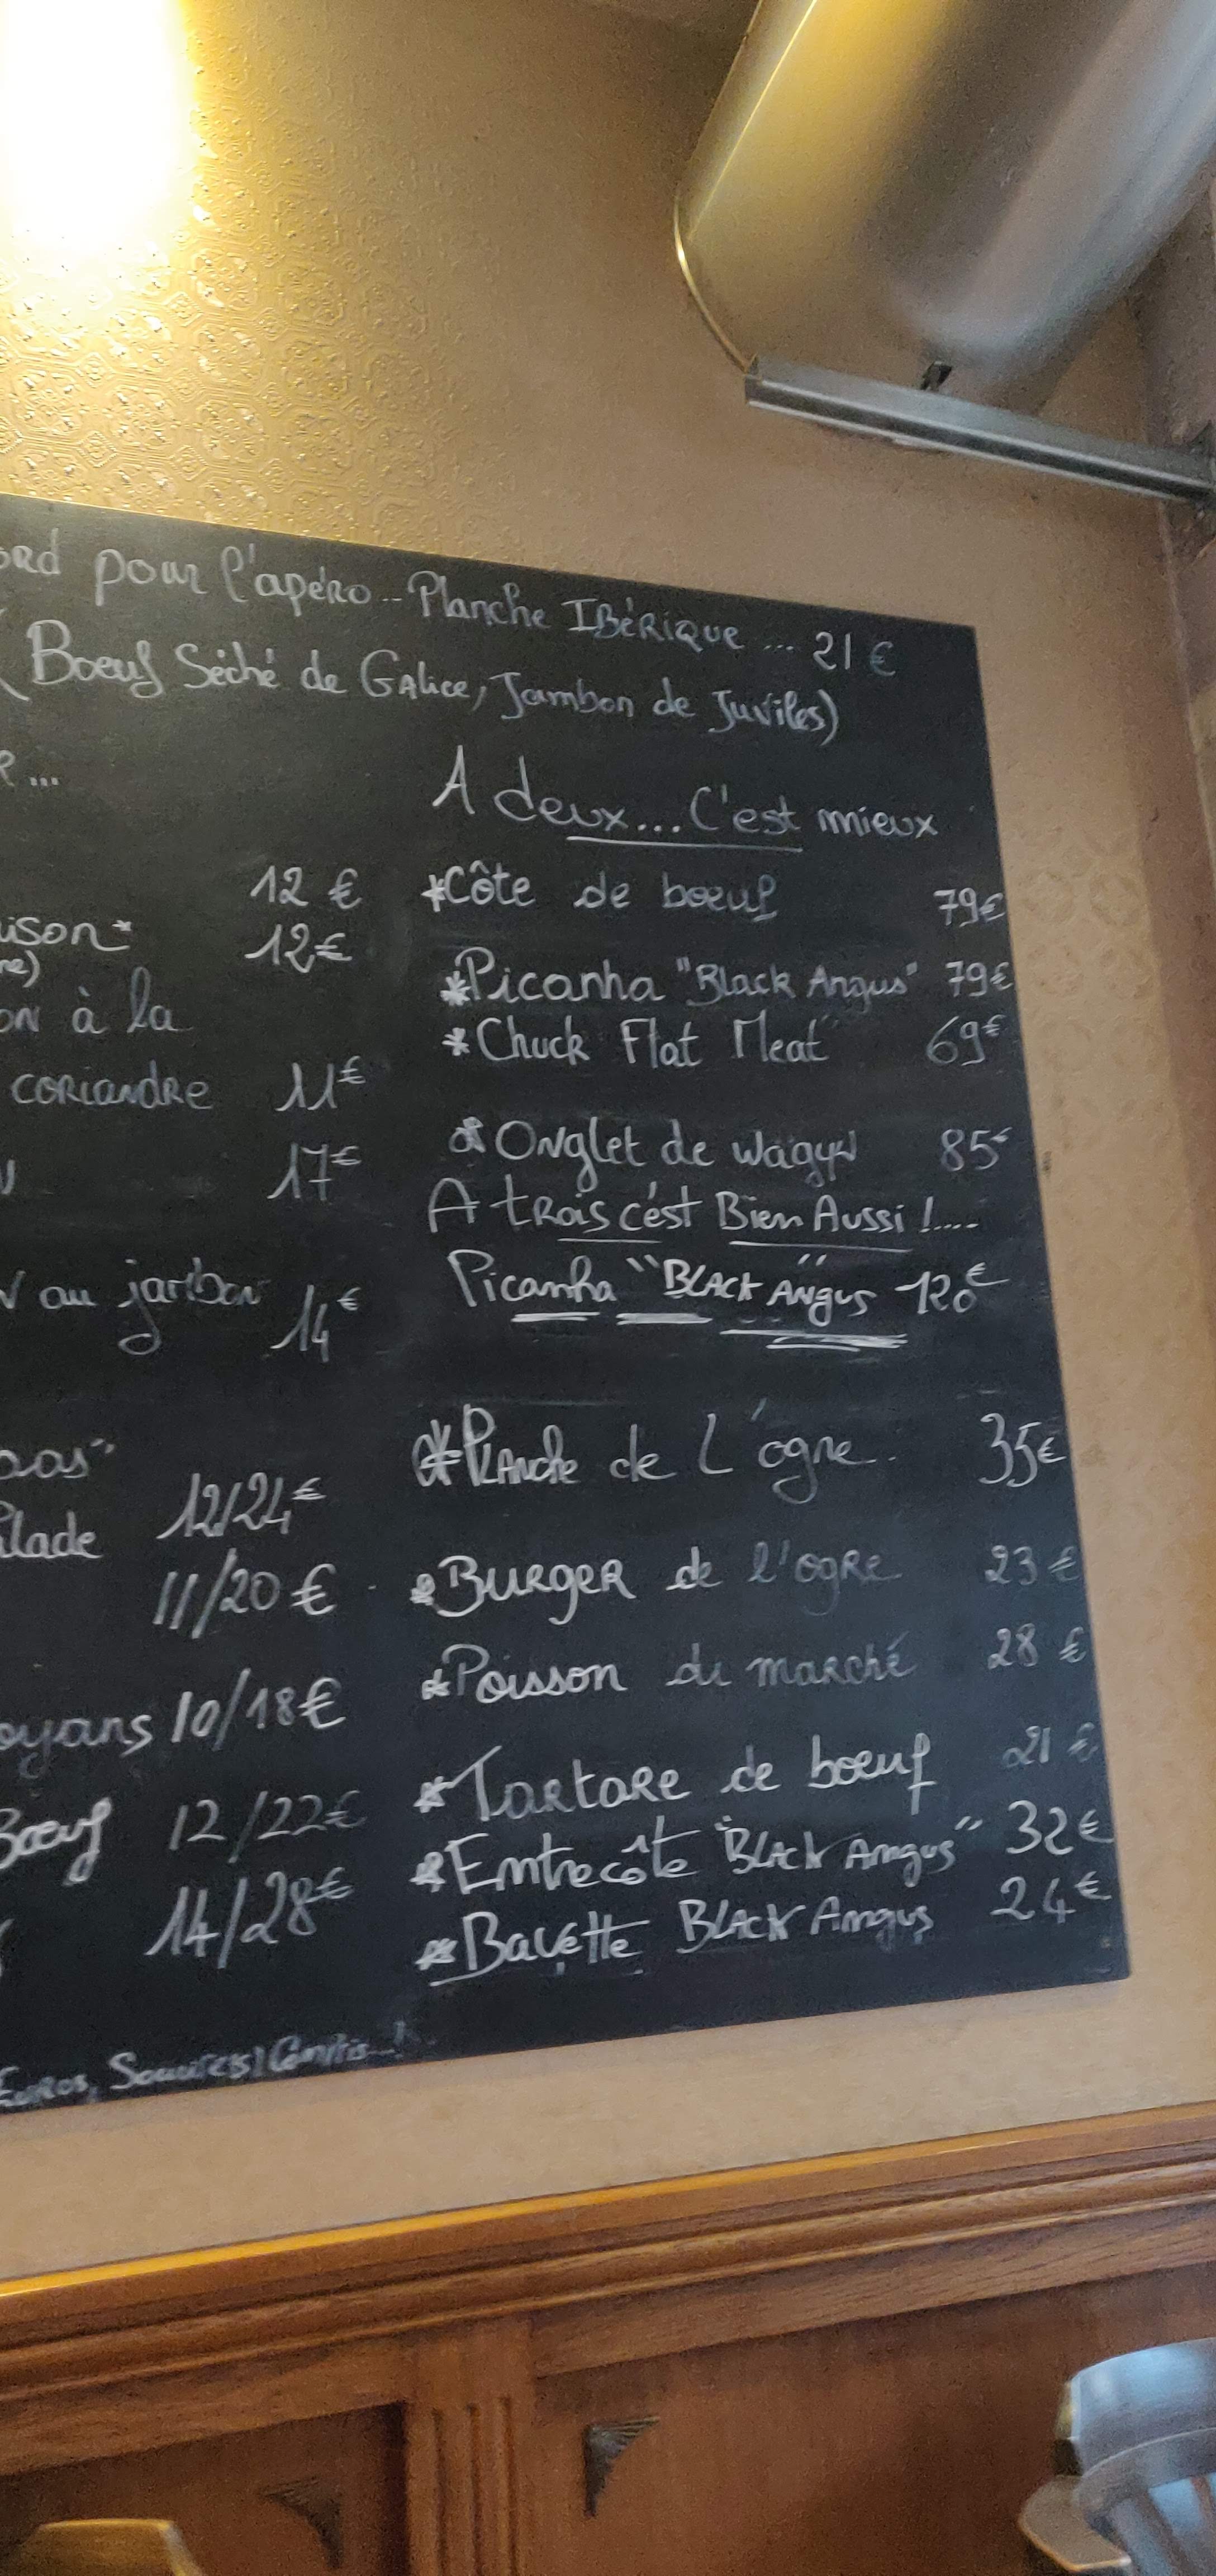 ord pour l'apéro.. Planche Ibérique ... 21 €
(Boeuf Séché de Galice, Jambon de Juviles)
R...
12 €
aison* 12€
ne)
on à la
coriandre 11€
17€
au jambon 14€
pas"
llade 12/24€
11/20 €
oyans 10/18€
Boeuf 12/22€
14/28€
Euros, Sauces
A deux... C'est mieux
*Côte de boeuf 79€
*Picanha "Black Angus" 79€
*Chuck Flat Meat 69€
*Onglet de wagyu 85€
A trois c'est Bien Aussi !....
Picanha "Black Angus" 120€
*Planche de L'ogre. 35€
*Burger de l'ogre 23 €
*Poisson du marché 28 €
*Tartare de boeuf 21 €
*Entrecôte "Black Angus" 32€
*Bavette Black Angus 24€